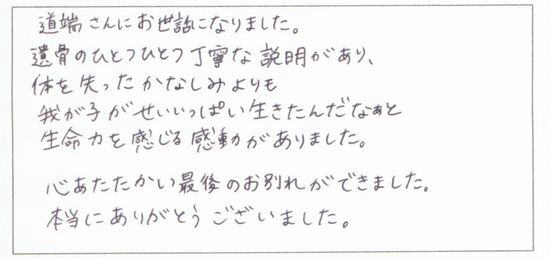 道端さんにお世話になりました。
遺骨のひとつひとつ丁寧な説明があり、
体を失ったかなしみよりも
我が子がせいいっぱい生きたんだなぁと
生命力を感じる感動がありました。
心あたたかい最後のお別れができました。
本当にありがとうございました。